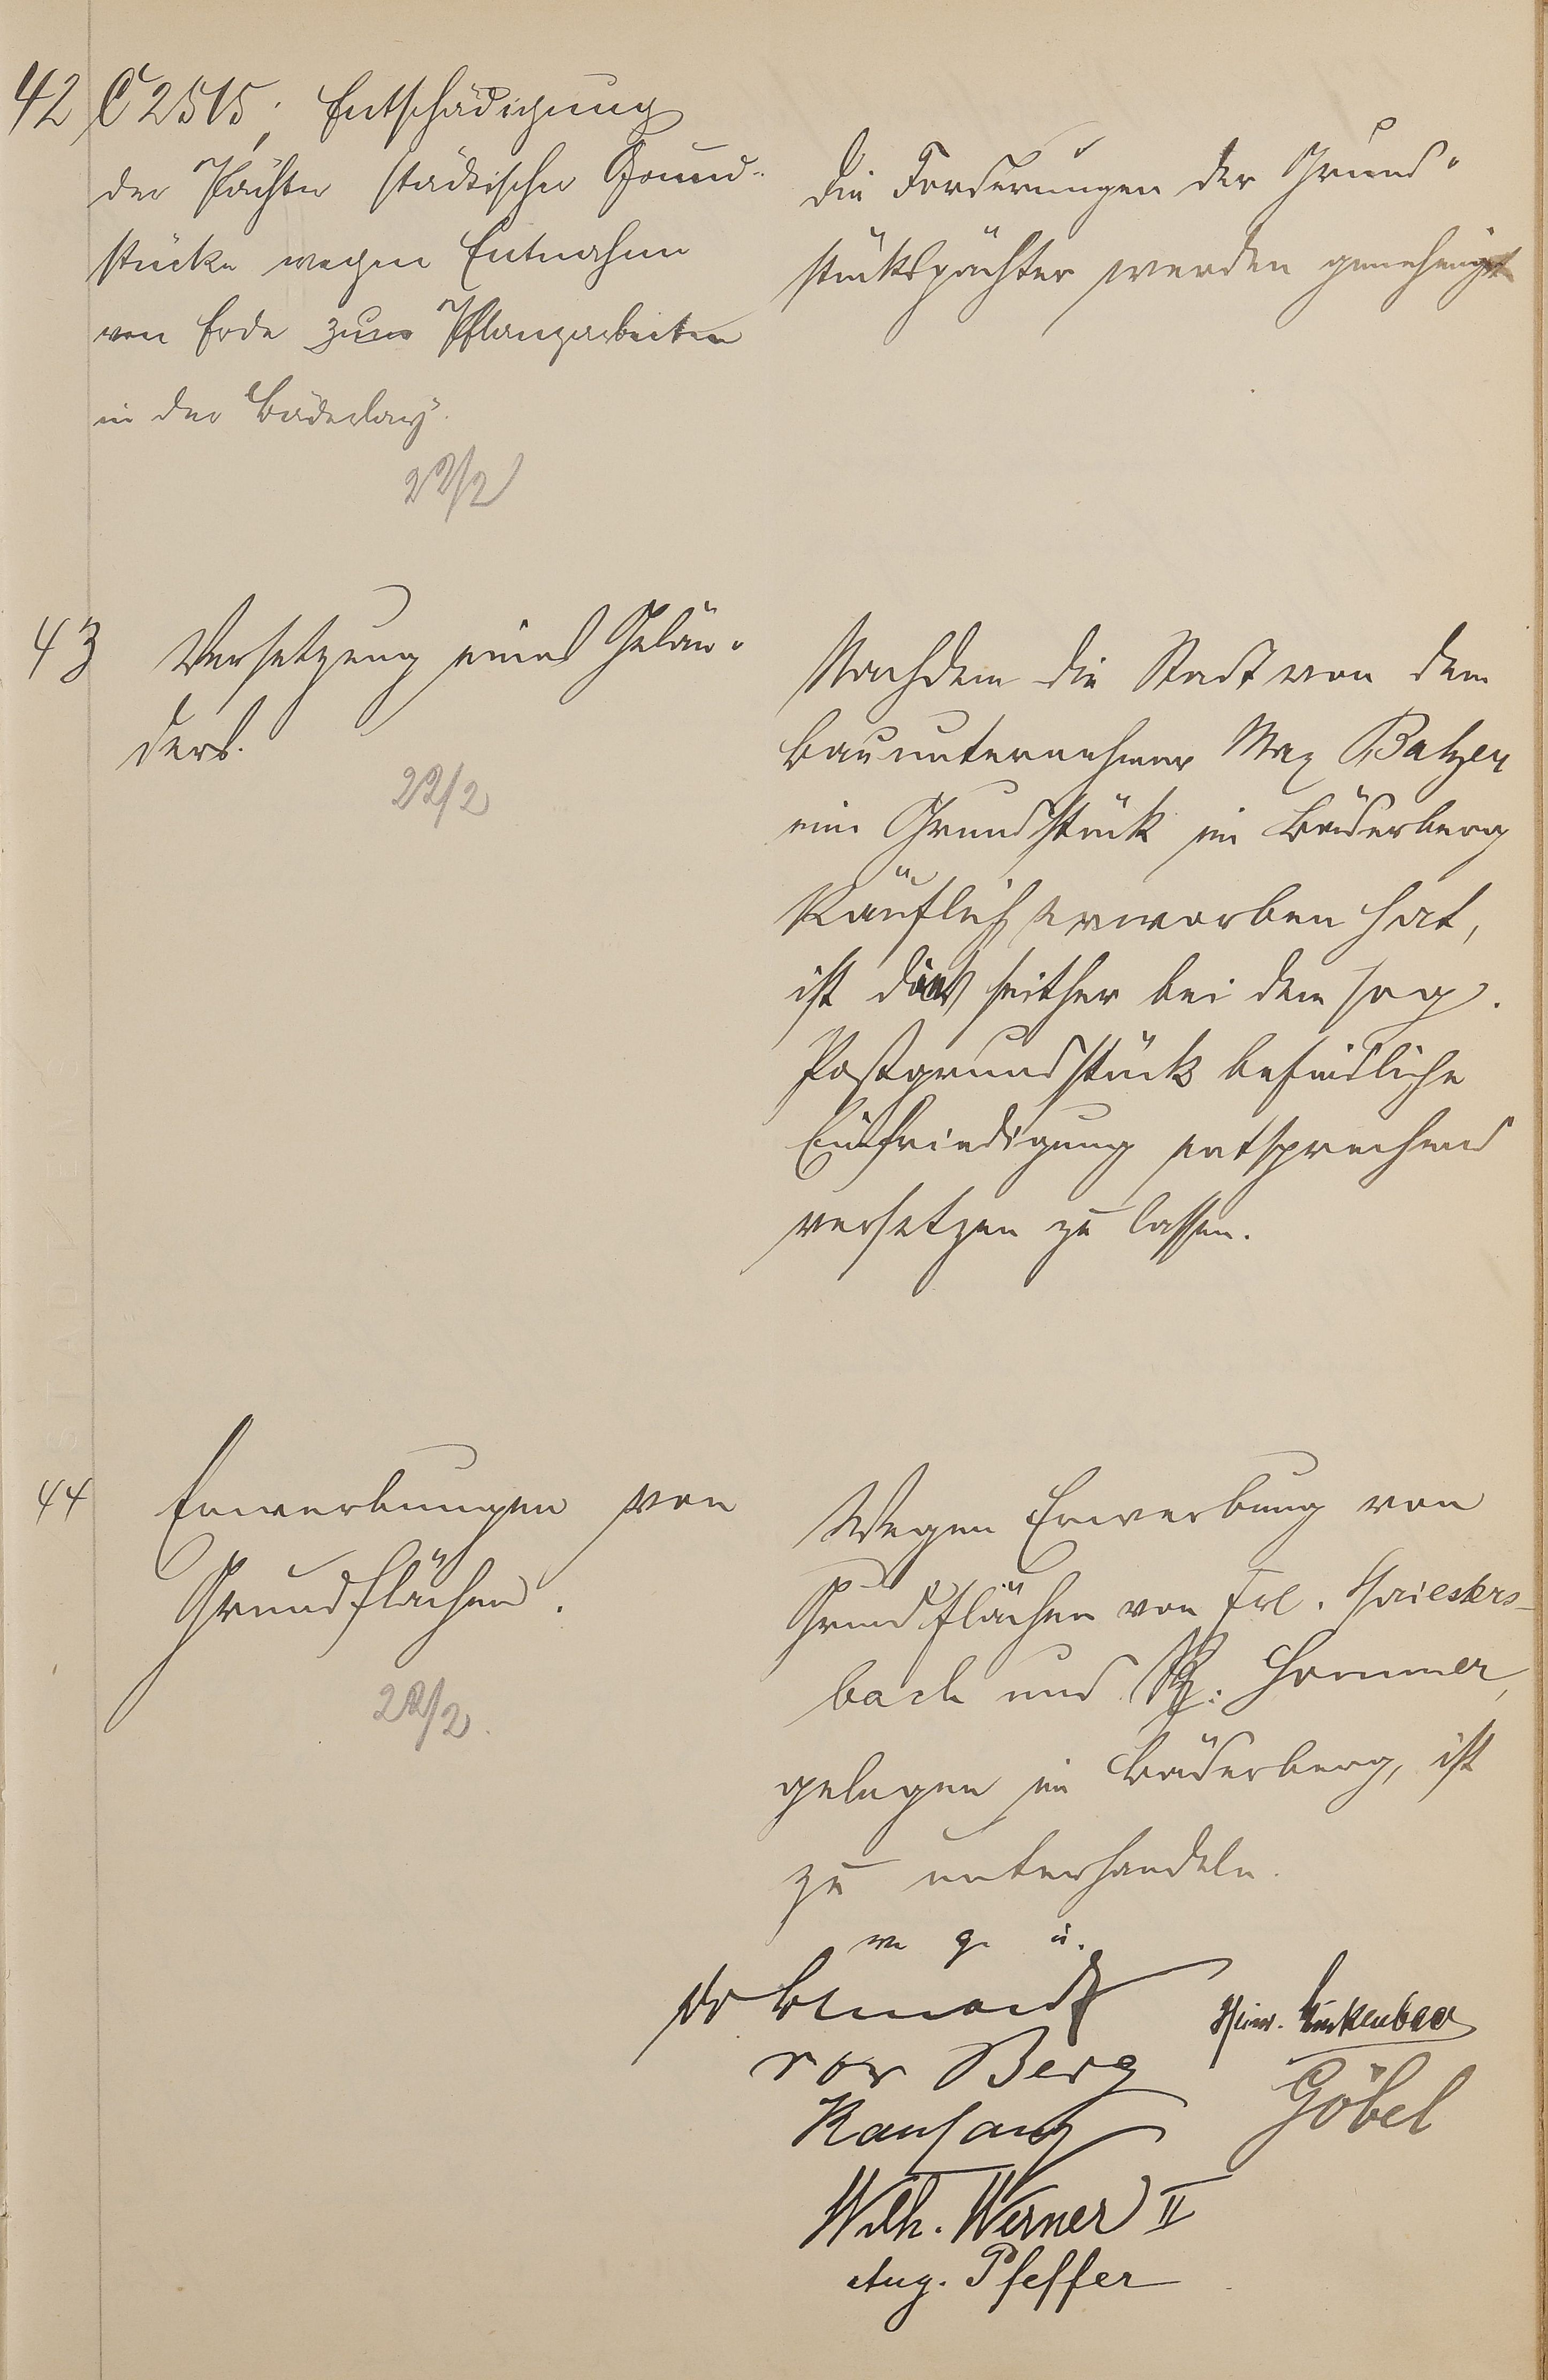 42 C 2515; Entschädigung
der Pächter städtischer Grund-
stücke wegen Entnahme
von Erde zum Pflanzarbeiten
in der Bäderlay.
22/2
Die Forderungen der Grund-
stückspächter werden genehmigt
43 Versetzung eines Gelän-
ders.
22/2
Nachdem die Stadt von dem
Bauunternehmer Max Balzer
ein Grundstück im Bäderberg
käuflich erworben hat,
ist die seither bei dem sog.
Postgrundstück befindliche
Einfriedigung entsprechend
versetzen zu lassen.
44 Erwerbungen von
Grundflächen.
22/2.
Wegen Erwerbung von
Grundflächen von Frl.
bach und Ph. Sommer,
gelegen im Bäderberg, ist
zu unterhandeln.
w g u.
Heinr.
vor Berg
Göbel
Wilh. Werner II
Aug. Pfeffer